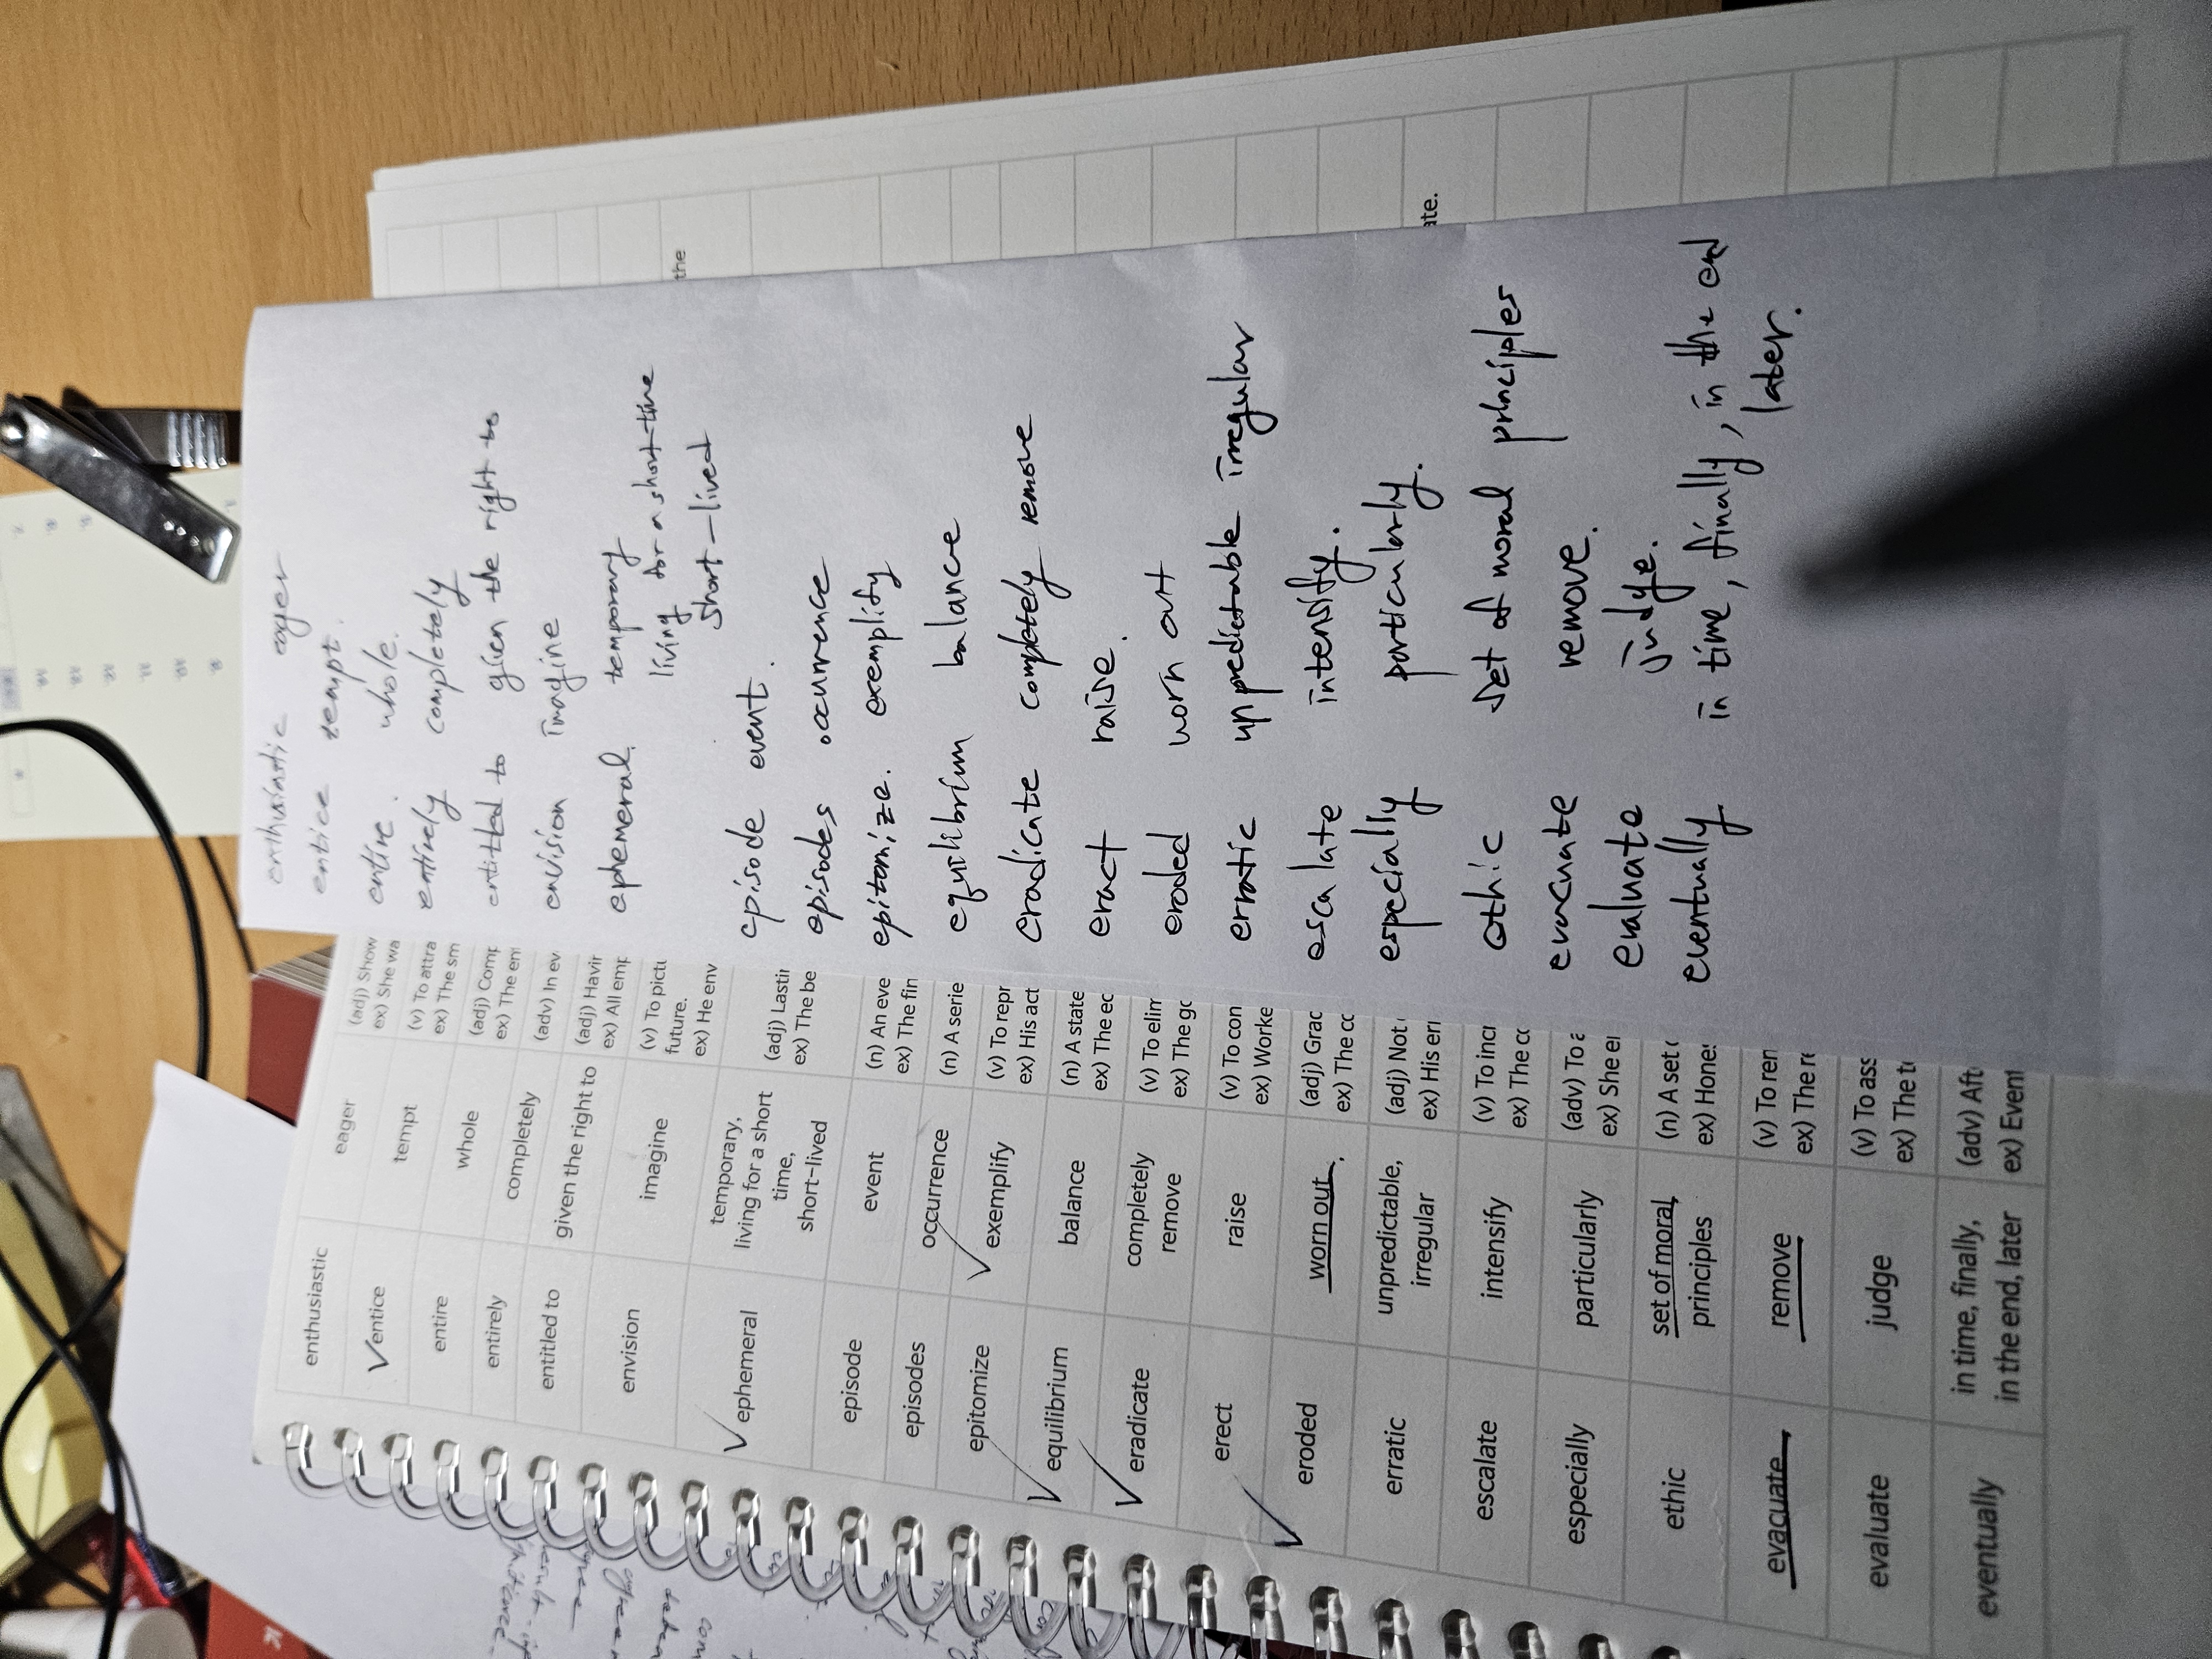 enthusiastic eager (adj) Show
ex) She wa
entice tempt (v) To attra
ex) The sm
entire whole (adj) Comp
ex) The en
entirely completely (adv) In ev
entitled to given the right to (adj) Havin
ex) All emp
envision imagine (v) To pictu
future.
ex) He env
ephemeral temporary,
living for a short
time,
short-lived
(adj) Lastin
ex) The be
episode event (n) An eve
ex) The fin
episodes occurrence (n) A serie
epitomize exemplify (v) To repr
ex) His act
equilibrium balance (n) A state
ex) The ec
eradicate completely
remove
(v) To elim
ex) The go
erect raise (v) To con
ex) Worke
eroded worn out (adj) Grac
ex) The co
erratic unpredictable,
irregular
(adj) Not
ex) His err
escalate intensify (v) To incr
ex) The co
especially particularly (adv) To a
ex) She er
ethic set of moral
principles
(n) A set
ex) Hones
evacuate remove (v) To ren
ex) The re
evaluate judge (v) To ass
ex) The t
eventually in time, finally,
in the end, later
(adv) Aft
ex) Event
enthusiastic eager
entice tempt.
entire. whole.
entirely completely
entitled to given the right to
envision imagine
ephemeral. temporary
living for a short time
short-lived
episode event.
episodes occurrence
epitomize. exemplify
equilibrium balance
eradicate completely remove
erect raise.
eroded worn out
erratic unpredictable irregular
escalate intensify.
especially particularly.
ethic set of moral principles
evacuate remove.
evaluate judge.
eventually in time, finally, in the end
later.
the
ate.